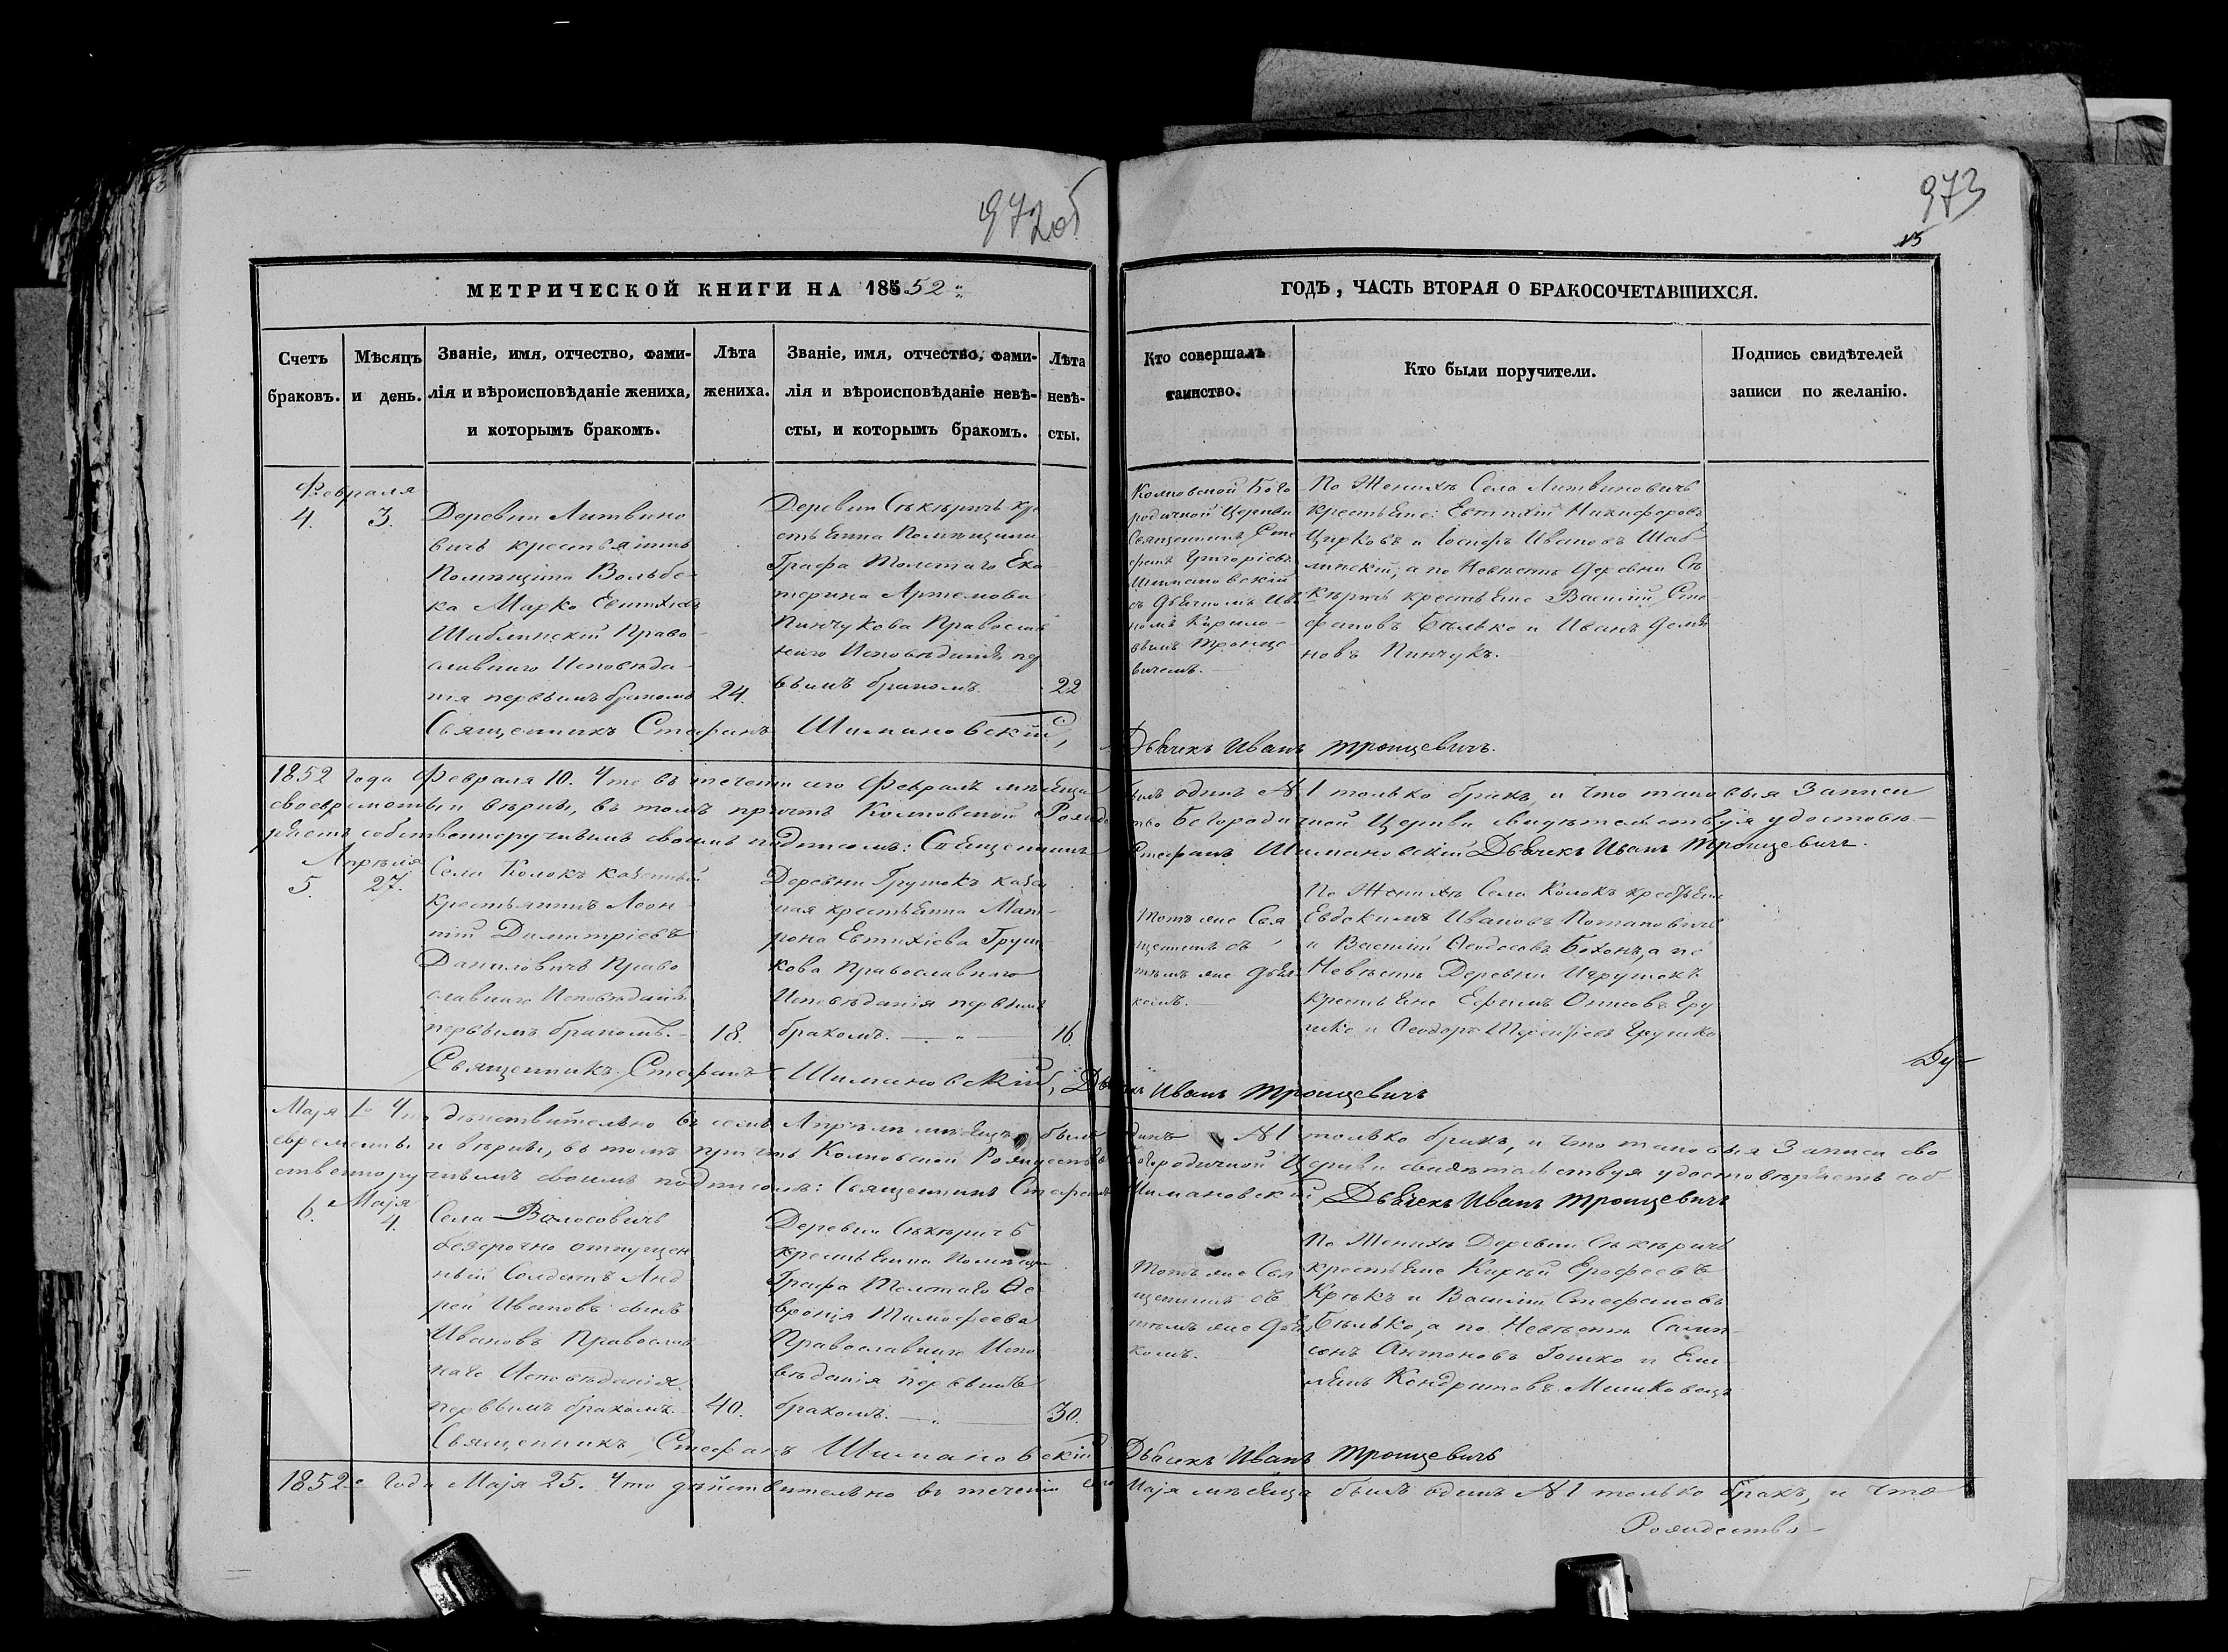 972об
973
15
МЕТРИЧЕСКОЙ КНИГИ НА 1852
ГОДЪ, ЧАСТЬ ВТОРАЯ О БРАКОСОЧЕТАВШИХСЯ.
Счетъ
браковъ.
Мѣсяцъ
и день.
Званіе, имя, отчество, фами-
лія и вѣроисповѣданіе жениха,
и которымъ бракомъ.
Лѣта
жениха.
Званіе, имя, отчество, фами-
лія и вѣроисповѣданіе невѣ-
сты, и которымъ бракомъ.
Лѣта
невѣ-
сты.
Кто совершалъ
таинство.
Кто были поручители.
Подпись свидѣтелей
записи по желанію.
Февраля
4. 3.
Деревни Литвино
вичъ крестьянинъ
Помѣщика Вольбе-
ка Марко Евтихіевъ
Шаблинскій Право-
славнаго Исповѣда-
нія первымъ бракомъ
24.
Деревни Сѣкѣричъ кре
стьянка Помѣщика
Графа Толстаго Ека
терина Артемова
Пинчукова Православ
наго Исповѣданія пер
вымъ бракомъ.
22
Колковской Бого
родичной Церкви
Священникъ Сте
фанъ Григоріевъ
Шимановскій
съ Дьячкомъ Ива
номъ Кирило-
вымъ Троице
вичемъ.
По Женихѣ Села Литвиновичъ
крестьяне: Евтихій Никифоровъ
Цирковъ и Іосифъ Ивановъ Шаб-
линскій, а по Невѣстѣ Деревни Сѣ
кѣричъ крестьяне Василій Сте
фановъ Бѣлько и Иванъ Демя
новъ Пинчукъ.
Священникъ Стефанъ Шимановскій, Дьячекъ Иванъ Троицевичъ.
1852 Года Февраля 10. Что въ теченіи сего Февралѣ мѣсяца былъ одинъ №1 только бракъ, и что таковыя Записи
своевременны и вѣрны, въ томъ причтъ Колковской Рождество Богородичной Церкви свидѣтельствуя удостовѣ-
ряетъ собственноручнымъ своимъ подписомъ: Священникъ Стефанъ Шимановскій Дьячекъ Иванъ Троицевичъ.
Апрѣля
5. 27.
Села Колокъ казенный
крестьянинъ Леон-
тій Димитріевъ
Даниловичъ Право
славнаго Исповѣданія
первымъ бракомъ.
18.
Деревни Грушокъ казен
ная крестьянка Мат-
рона Евтихіева Груш-
кова Православнаго
Исповѣданія первымъ
бракомъ.
16.
Тотъ же Свя
щенникъ съ
тѣмъ же Дьяч
комъ.
По Женихѣ Села Колокъ крестьяне
Евдокимъ Ивановъ Потаповичъ
и Василій Ѳеодосовъ Боконъ, а по
Невѣстѣ Деревни
крестьяне Ефимъ Онисовъ Гру
шко и Ѳеодоръ Грушко
Священникъ Стефанъ Шимановскій, Дьячекъ Иванъ Троицевичъ
Ду-
Маія 1го Что дѣйствительно въ семъ Апрѣлѣ мѣсяцѣ былъ одинъ №1 только бракъ, и что таковыя Записи сво
евременны и вѣрны, въ томъ причтъ Колковской Рождество Богородичной Церкви свидѣтельствуя удостовѣряетъ соб-
ственноручнымъ своимъ подписомъ: Священникъ Стефанъ Шимановскій, Дьячекъ Иванъ Троицевичъ
Маія
6. 4.
Села Волосовичъ
безсрочно отпущен
ный Солдатъ Анд
рей Ивановъ сынъ
Ивановъ Православ
наго Исповѣданія
первымъ бракомъ.
40.
Деревни Сѣкѣричъ
крестьянка Помѣщи
Графа Толстаго Ѳе
вронія Тимофеева
Православнаго Испо
вѣданія первымъ
бракомъ.
30.
Тотъ же Свя
щенникъ съ
тѣмъ же Дьяч
комъ.
По Женихѣ Деревни Сѣкѣричъ
крестьяне Кирѣй Ерофеевъ
Крѣкъ и Василій Стефановъ
Бѣлько, а по Невѣстѣ Самп-
сонъ Антоновъ Гошко и Еме-
льянъ Кондратовъ Мишковецъ
Священникъ Стефанъ Шимановскій Дьячекъ Иванъ Троицевичъ
1852го Года Маія 25. Что дѣйствительно въ теченіи сего Маія мѣсяца былъ одинъ №1 только бракъ, и что
Рождество-